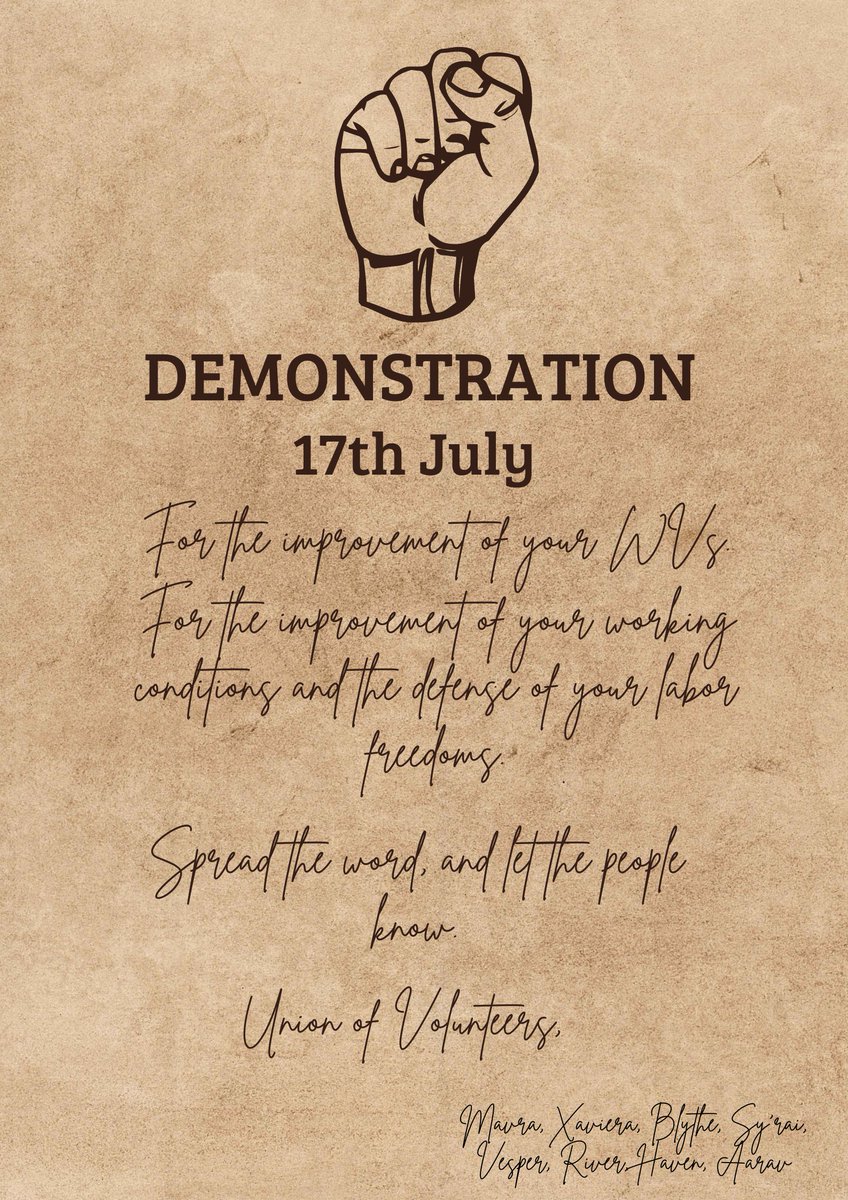 DEMONSTRATION
17th July
For the improvement of your WVs.
For the improvement of your working
conditions and the defense of your labor
freedoms.
Spread the word, and let the people
know.
Union of Volunteers,
Mavra, Xaviera, Blythe, Sy'rai,
Vesper, River, Haven, Aarav